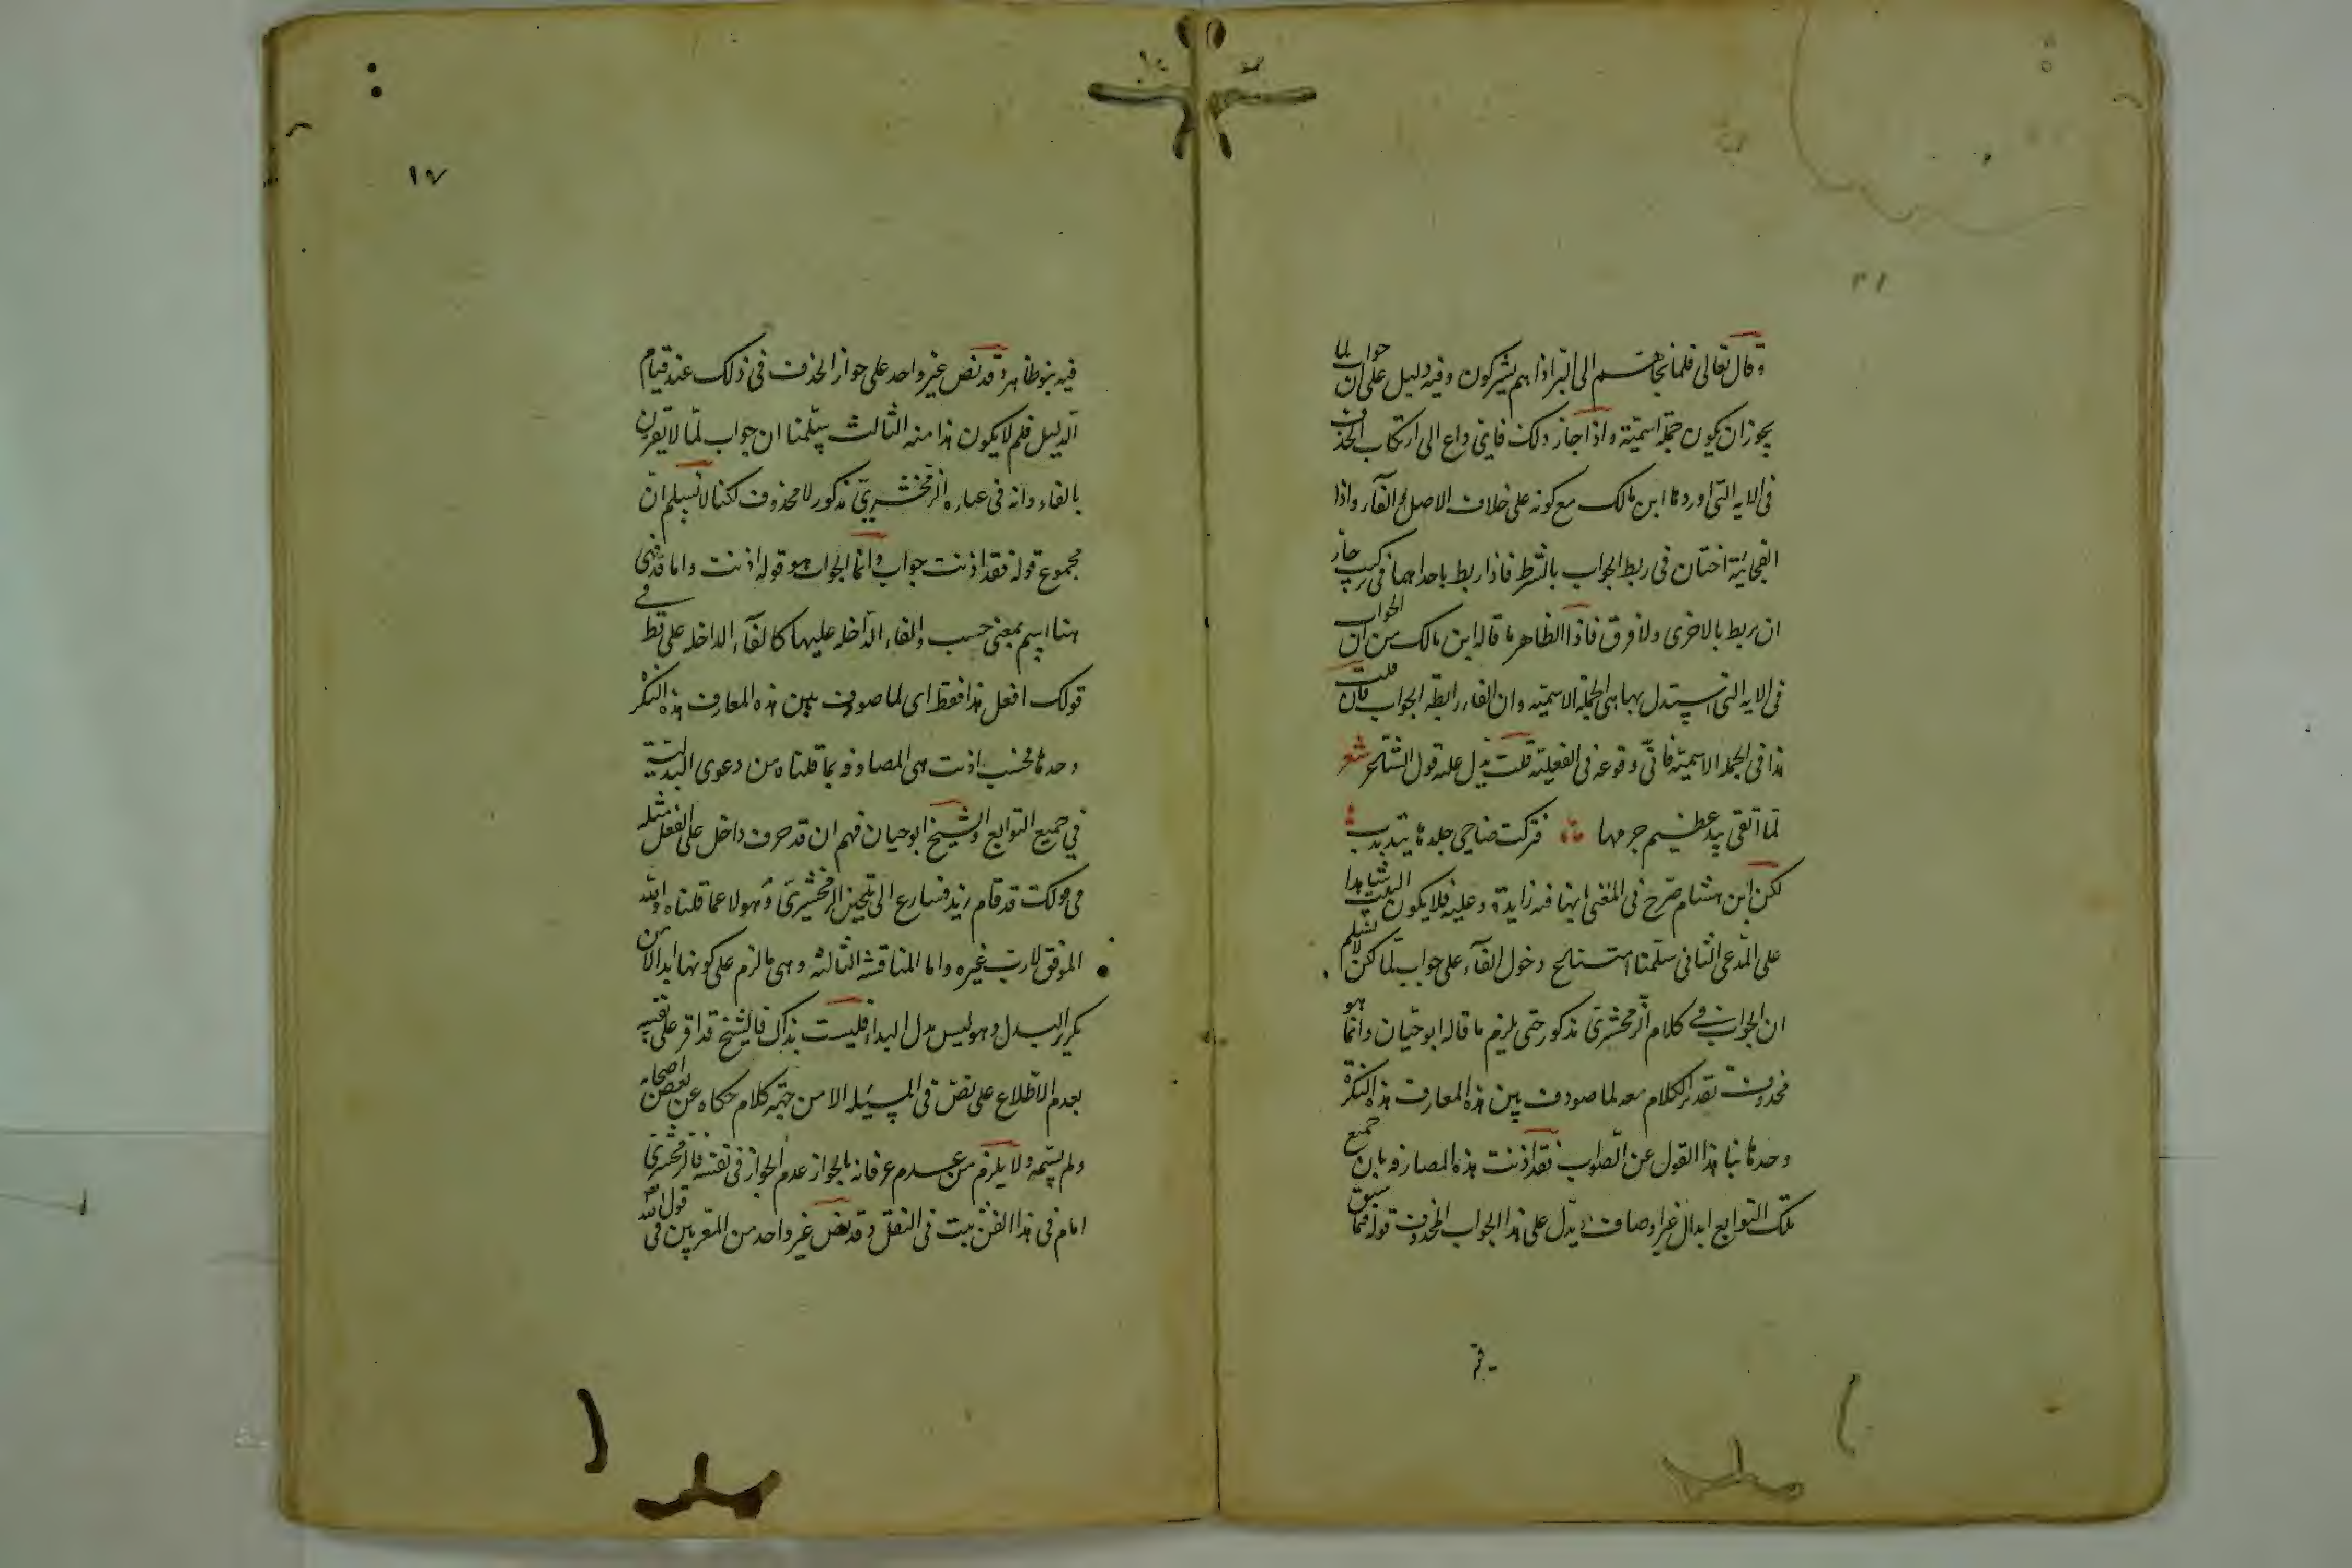 وقال تعالى فلما نجاهم الى البر اذا هم يشركون وفيه دليل على ان جواب لما
يجوز ان يكون جملة اسمية واذا جاز ذلك فاى داع الى ارتكاب الحذف
فى الاية التى اوردها ابن مالك مع كونه على خلاف الاصل والفاء واذا
الفجائية اختان فى ربط الجواب بالشرط فاذا ربط باحداهما فى تركيب جاز
ان يربط بالاخرى ولا فرق فاذا الظاهر ما قاله ابن مالك من ان الجواب
فى الاية التى استدل بها هى الجملة الاسمية وان الفاء رابطة الجواب فان قلت
هذا فى الجملة الاسمية فانى وقوعه فى الفعلية قلت يدل عليه قول الشاعر شعر
لما اتقى بيد عظيم جرمها فتركت ضاحى جلدها يتذبذب
لكن ابن هشام صرح فى المغنى انها فيه زايدة وعليه فلا يكون البيت شاهدا
على المدعى الثانى سلمنا دخول الفاء على جواب لما لكن لا نسلم
ان الجواب فى كلام الزمخشرى مذكور حتى يلزم ما قاله ابو حيان وانما هو
محذوف تقدير الكلام معه لما صودف بين هذه المعارف هذه النكرة
وحدها نبا هذا القول عن الصواب فقد اذنت هذه المصادفة بان جميع
تلك التوابع ابدال غير اوصاف ويدل على هذا الجواب المحذوف قوله فيما سبق
١٧
فيه نبو ظاهر وقد نص غير واحد على جواز الحذف فى ذلك عند قيام
الدليل فلم لا يكون هذا منه الثالث سلمنا ان جواب لما لا يقترن
بالفاء وانه فى عبارة الزمخشرى مذكور لا محذوف لكنا لا نسلم ان
مجموع قوله فقد اذنت جواب وانما الجواب هو قوله اذنت واما قد فهى
هنا اسم بمعنى حسب والفاء الداخلة عليها كالفاء الداخلة على قط فى
قولك افعل هذا فقط اى لما صودف بين هذه المعارف هذه النكرة
وحدها فحسب اذنت هى المصادفة بما قلناه من دعوى البدلية
فى جميع التوابع والشيخ ابو حيان فهم ان قد حرف داخل على الفعل مثله
فى قولك قد قام زيد فسارع الى تلحين الزمخشرى وهو لا عما قلناه والله
الموفق لا رب غيره واما المناقشة الثالثة وهى ما لزم على كونها ابدالا من
تكرير البدل وهو ليس بدل البدا فليست بذاك فالشيخ قد اقر على نفسه
بعدم الاطلاع على نص فى المسئلة الا من جهة كلام حكاه عن بعض اصحابه
ولم يسمه ولا يلزم من عدم عرفانه بالجواز عدم الجواز فى نفسه فالزمخشرى
امام فى هذا الفن ثبت فى النقل وقد نص غير واحد من المعربين فى قول الله